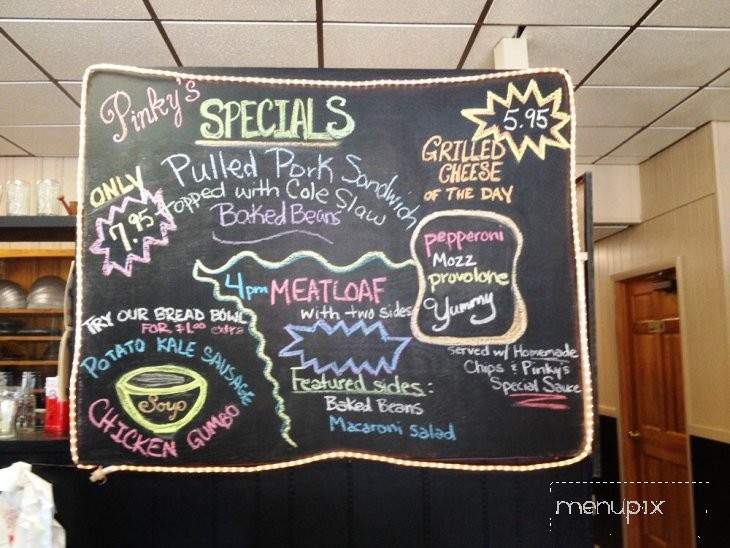 Pinky's
SPECIALS
Pulled Pork Sandwich
topped with Cole Slaw
Baked Beans
ONLY
7.95
5.95
GRILLED
CHEESE
OF THE DAY
pepperoni
Mozz
provolone
Yummy
served w/ Homemade
Chips & Pinky's
Special Sauce
4pm MEATLOAF
with two sides
Featured sides:
Baked Beans
Macaroni Salad
TRY OUR BREAD BOWL
FOR $1.00 extra
POTATO KALE SAUSAGE
Soup
CHICKEN GUMBO
menupix